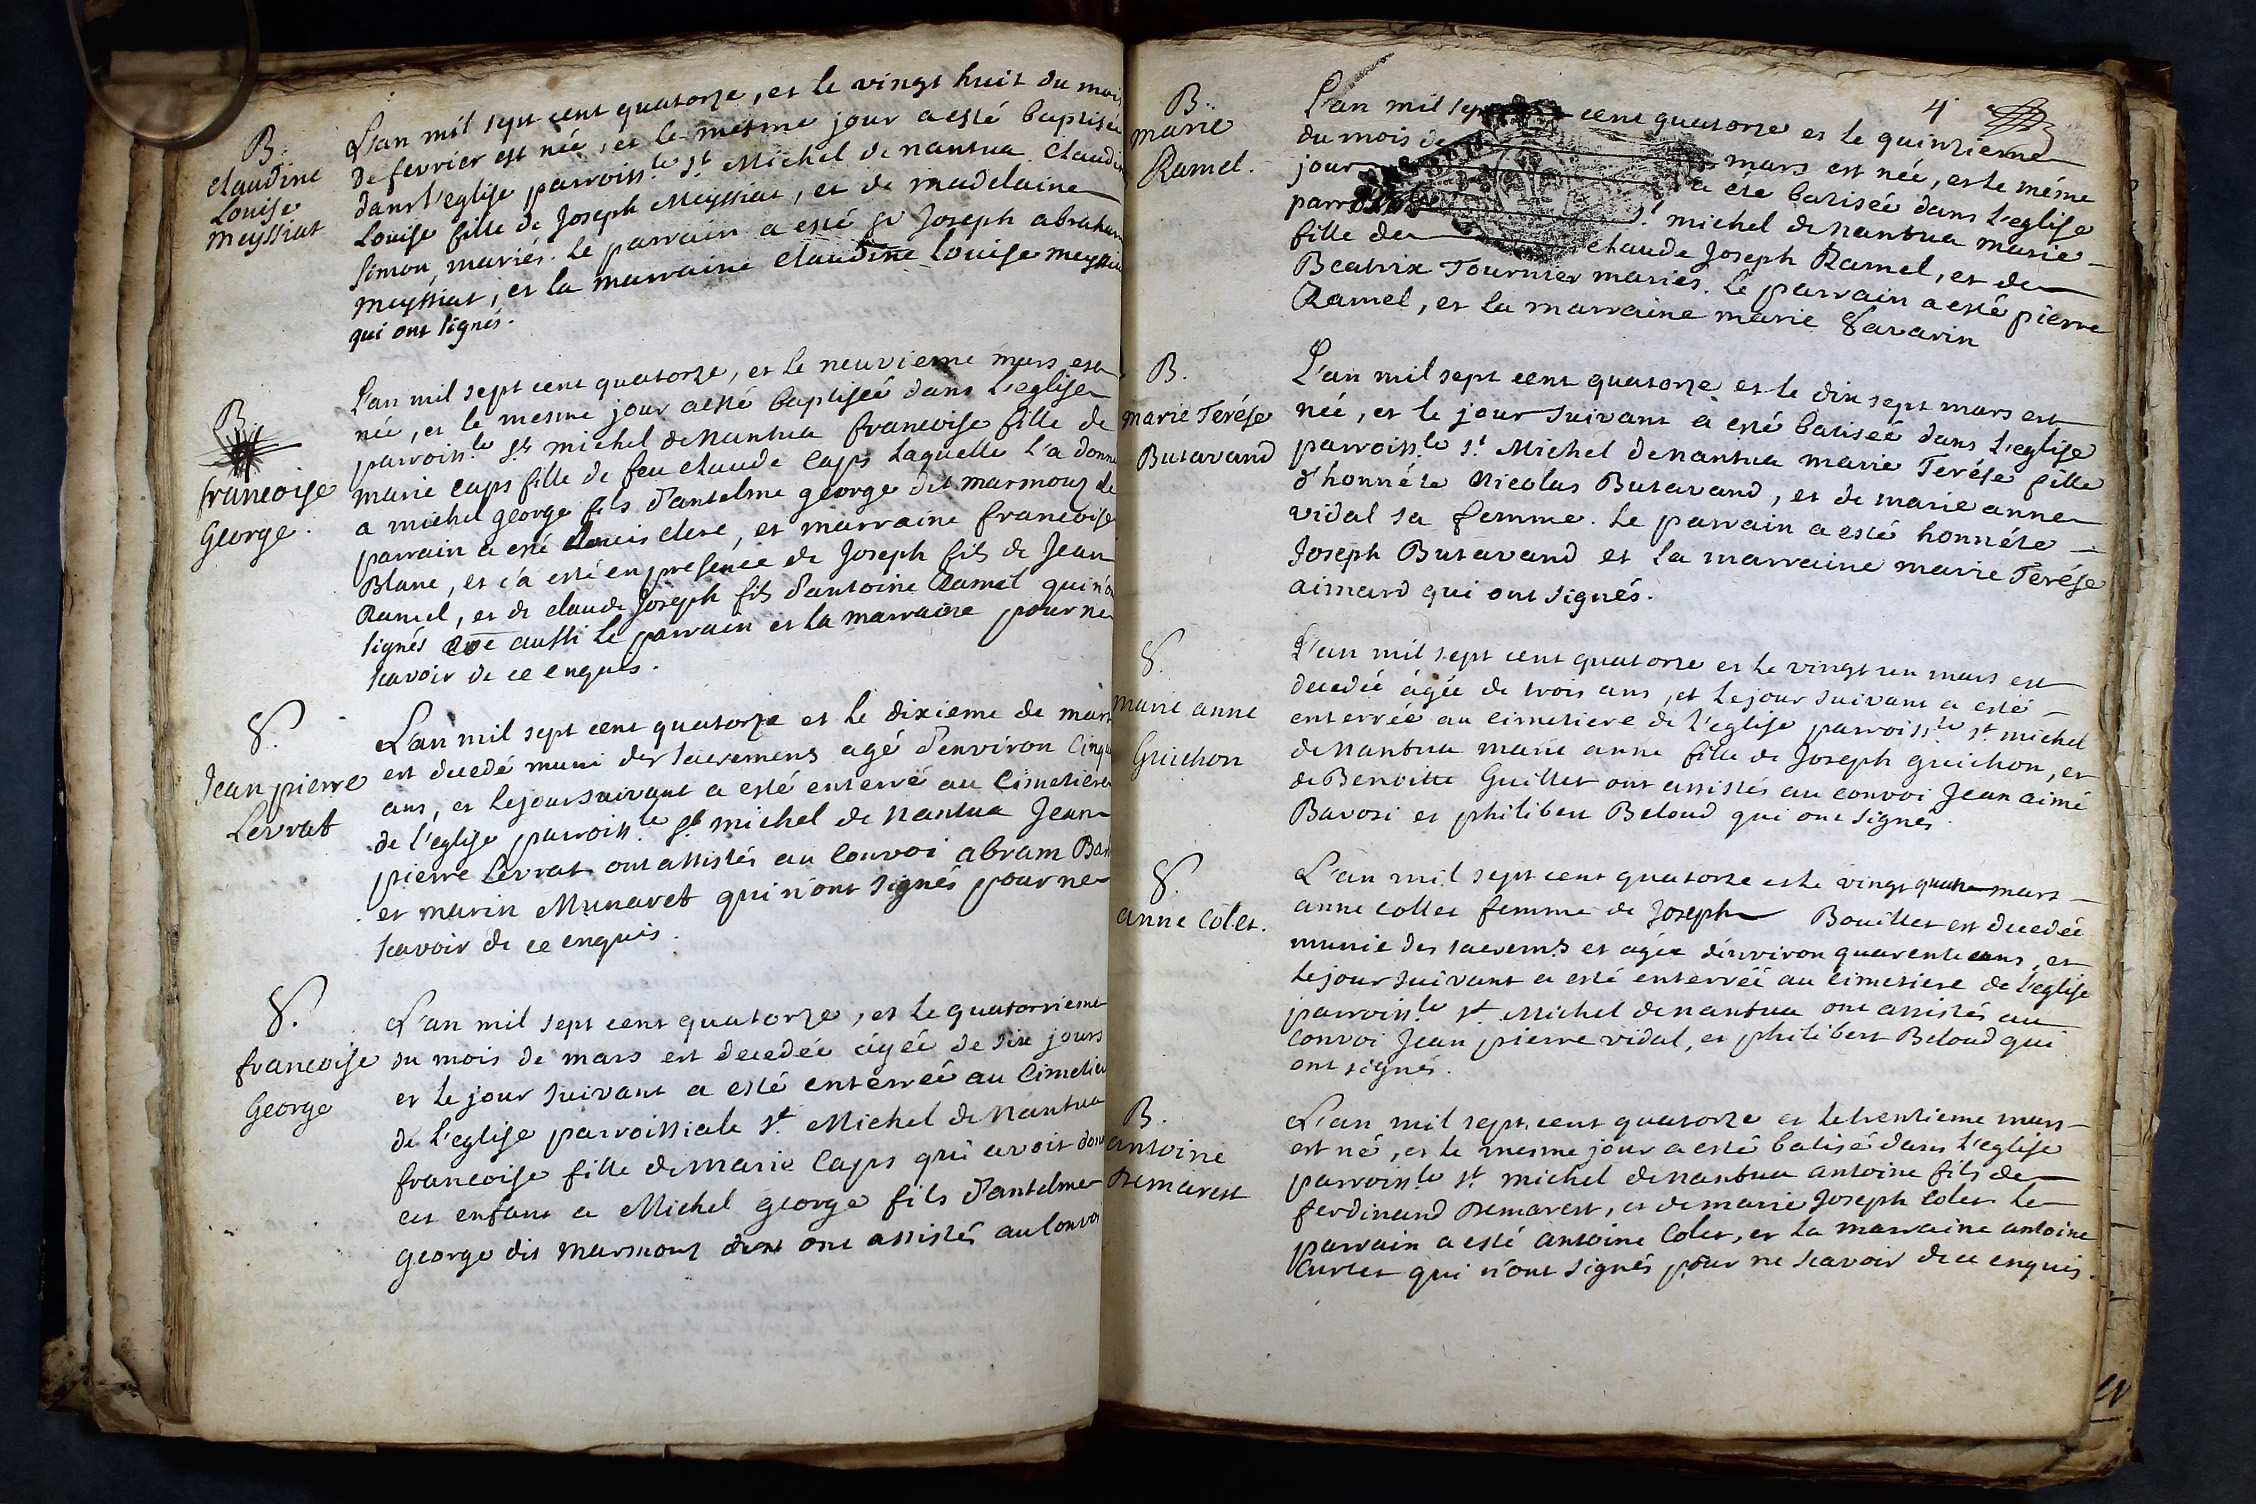 B.
Claudine
Louise
Meyssiat
L'an mil sept cent quatorze, et le vingt huit du mois
de fevrier est née, et le mesme jour a esté baptisée
dans l'eglise parroiss.le St Michel de nantua Claudine
Louise fille de Joseph Meyssiat, et de madelaine
Simon, mariés. Le parrain a esté Sr Joseph abraham
Meyssiat, et la marraine Claudine Louise meyssiat
qui ont signés.
B.
francoise
George.
L'an mil sept cent quatorze, et le neuvieme mars est
née, et le mesme jour a esté baptisée dans l'eglise
parroiss.le St michel de Nantua francoise fille de
marie caps fille de feu claude caps laquelle l'a donné
a michel george fils d'antelme george dit marmouz le
parrain a esté Louis clerc, et marraine francoise
Blanc, et ç'a esté en presence de Joseph fils de Jean
Ramel, et de claude Joseph fils d'antoine Ramel qui n'ont
signés aussi le parrain et la marraine pour ne
scavoir de ce enquis.
8.
Jean pierre
Levrat
L'an mil sept cent quatorze et le dixieme de mars
est decedé muni des sacremens agé d'environ cinq
ans, et le jour suivant a esté enterré au cimetiere
de l'eglise parroiss.le St michel de nantua Jean
pierre Levrat ont assistés au convoi abram
et marin Munaret qui n'ont signés pour ne
scavoir de ce enquis.
8.
francoise
George
L'an mil sept cent quatorze, et le quatorzieme
du mois de mars est decedée agée de six jours
et le jour suivant a esté enterrée au cimetiere
de l'eglise parroissiale St Michel de Nantua
francoise fille de marie caps qui avoit donné
cet enfant a Michel george fils d'antelme
george dit marmouz ont assistés au convoi
4
B.
marie
Ramel.
L'an mil sept cent quatorze et le quinzieme
du mois de mars est née, et le méme
jour a été batisée dans l'eglise
parroiss.le St michel de Nantua marie
fille de claude Joseph Ramel, et de
Beatrix Tournier mariés. Le parrain a esté pierre
Ramel, et la marraine marie Savarin
B.
marie Terése
Butavand
L'an mil sept cent quatorze et le dix sept mars est
née, et le jour suivant a esté batiseé dans l'eglise
parroiss.le St Michel de nantua marie Terése fille
d'honnéte Nicolas Butavand, et de marie anne
vidal sa femme. Le parrain a esté honnéte
Joseph Butavand et la marraine marie Terése
aimard qui ont signés.
8.
marie anne
Guichon
L'an mil sept cent quatorze et le vingt un mars est
decedée agée de trois ans, et le jour suivant a esté
enterrée au cimetiere de l'eglise parroiss.le St michel
de Nantua marie anne fille de Joseph guichon, et
de Benoitte Guillet ont assistés au convoi Jean aimé
Bavosi et philibert Beloud qui ont signés.
8.
anne Colet.
L'an mil sept cent quatorze et le vingt quatre mars
anne collet femme de Joseph Bouillet est decedée
munie des sacrems et agée d'environ quarente ans, et
le jour suivant a esté enterreé au cimetiere de l'eglise
parroiss.le St Michel de nantua ont assistés au
convoi Jean pierre vidal, et philibert Beloud qui
ont signés.
B.
antoine
Demarest
L'an mil sept cent quatorze et le trentieme mars
est né, et le mesme jour a esté batisé dans l'eglise
parroiss.le St michel de nantua antoine fils de
ferdinand Demarest, et de marie Joseph colet le
parrain a esté antoine Colet, et la marraine antoine
Curtet qui n'ont signés pour ne scavoir de ce enquis.